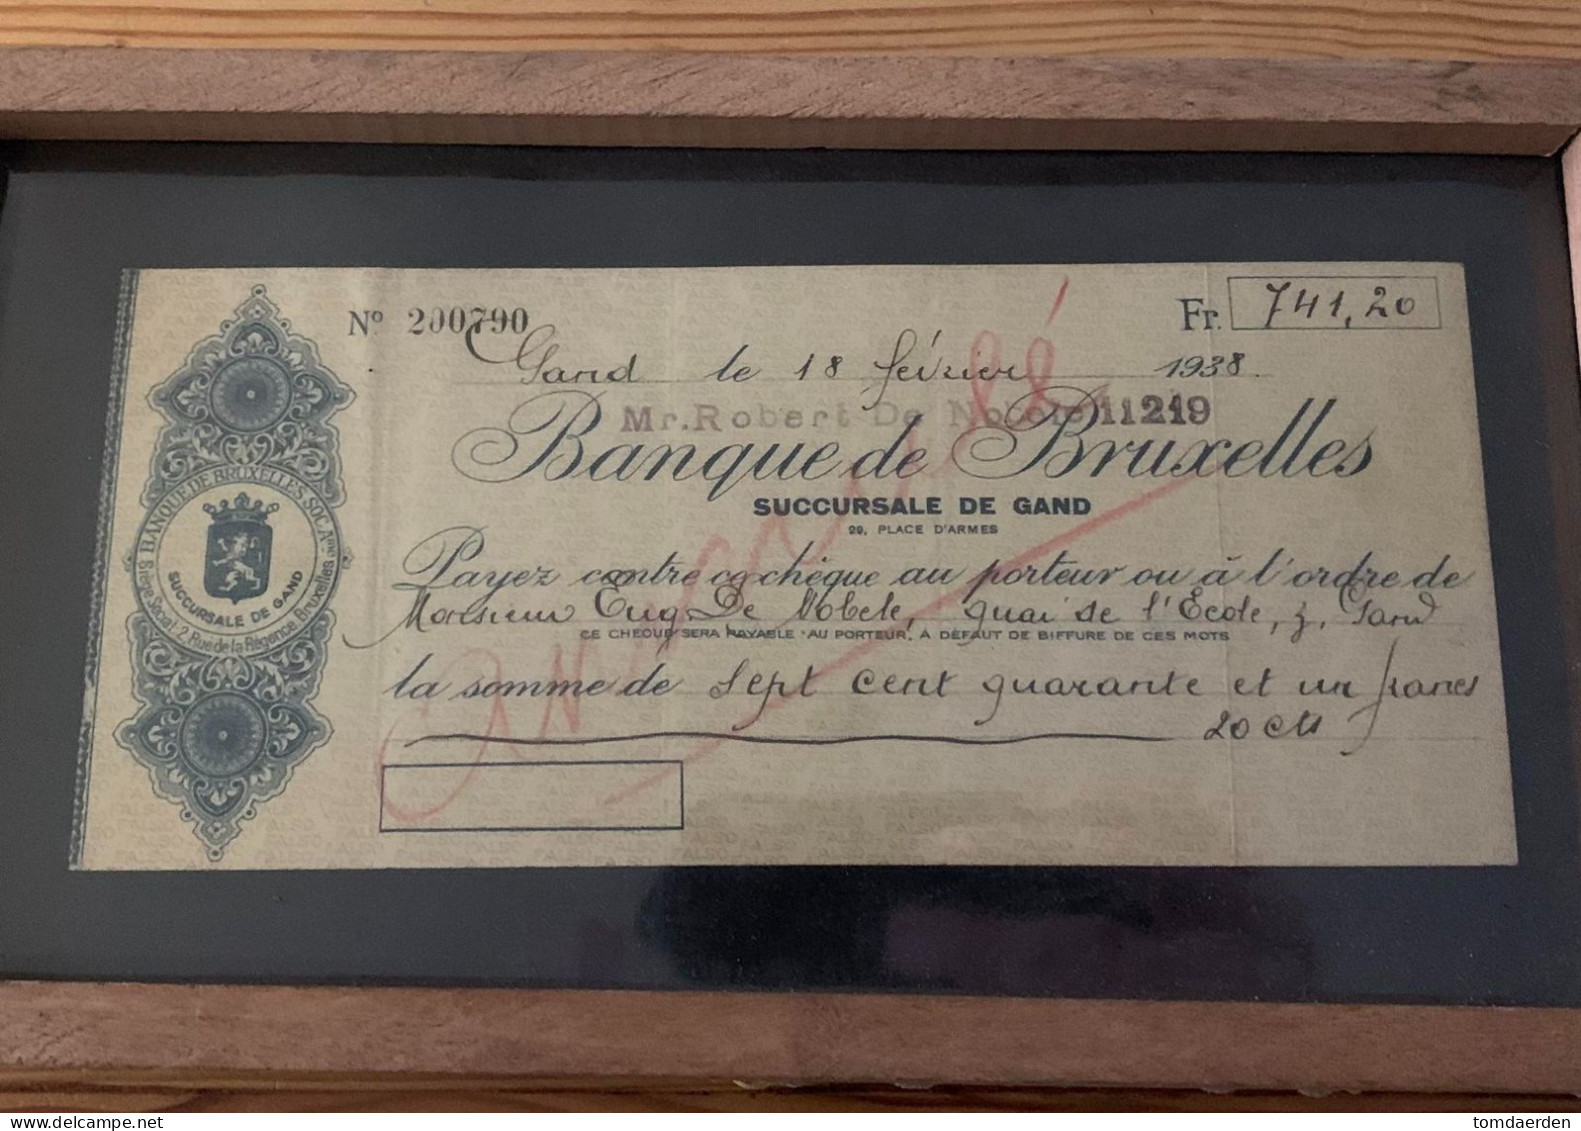 Nº 200790
Fr. 741,20
Gand le 18 février 1938
Mr. Robert De Nobele 11219
Banque de Bruxelles
SUCCURSALE DE GAND
29, PLACE D'ARMES
Payez contre ce chèque au porteur ou à l'ordre de
Monsieur Eug. De Nobele, quai de l'École, 3, Gand
CE CHEQUE SERA PAYABLE AU PORTEUR, A DÉFAUT DE BIFFURE DE CES MOTS
la somme de Sept cent quarante et un francs
20 cts
Annulé
BANQUE DE BRUXELLES SOC. Ame
SUCCURSALE DE GAND
Siège Social: 2, Rue de la Régence, Bruxelles
delcampe.net
tomdaerden